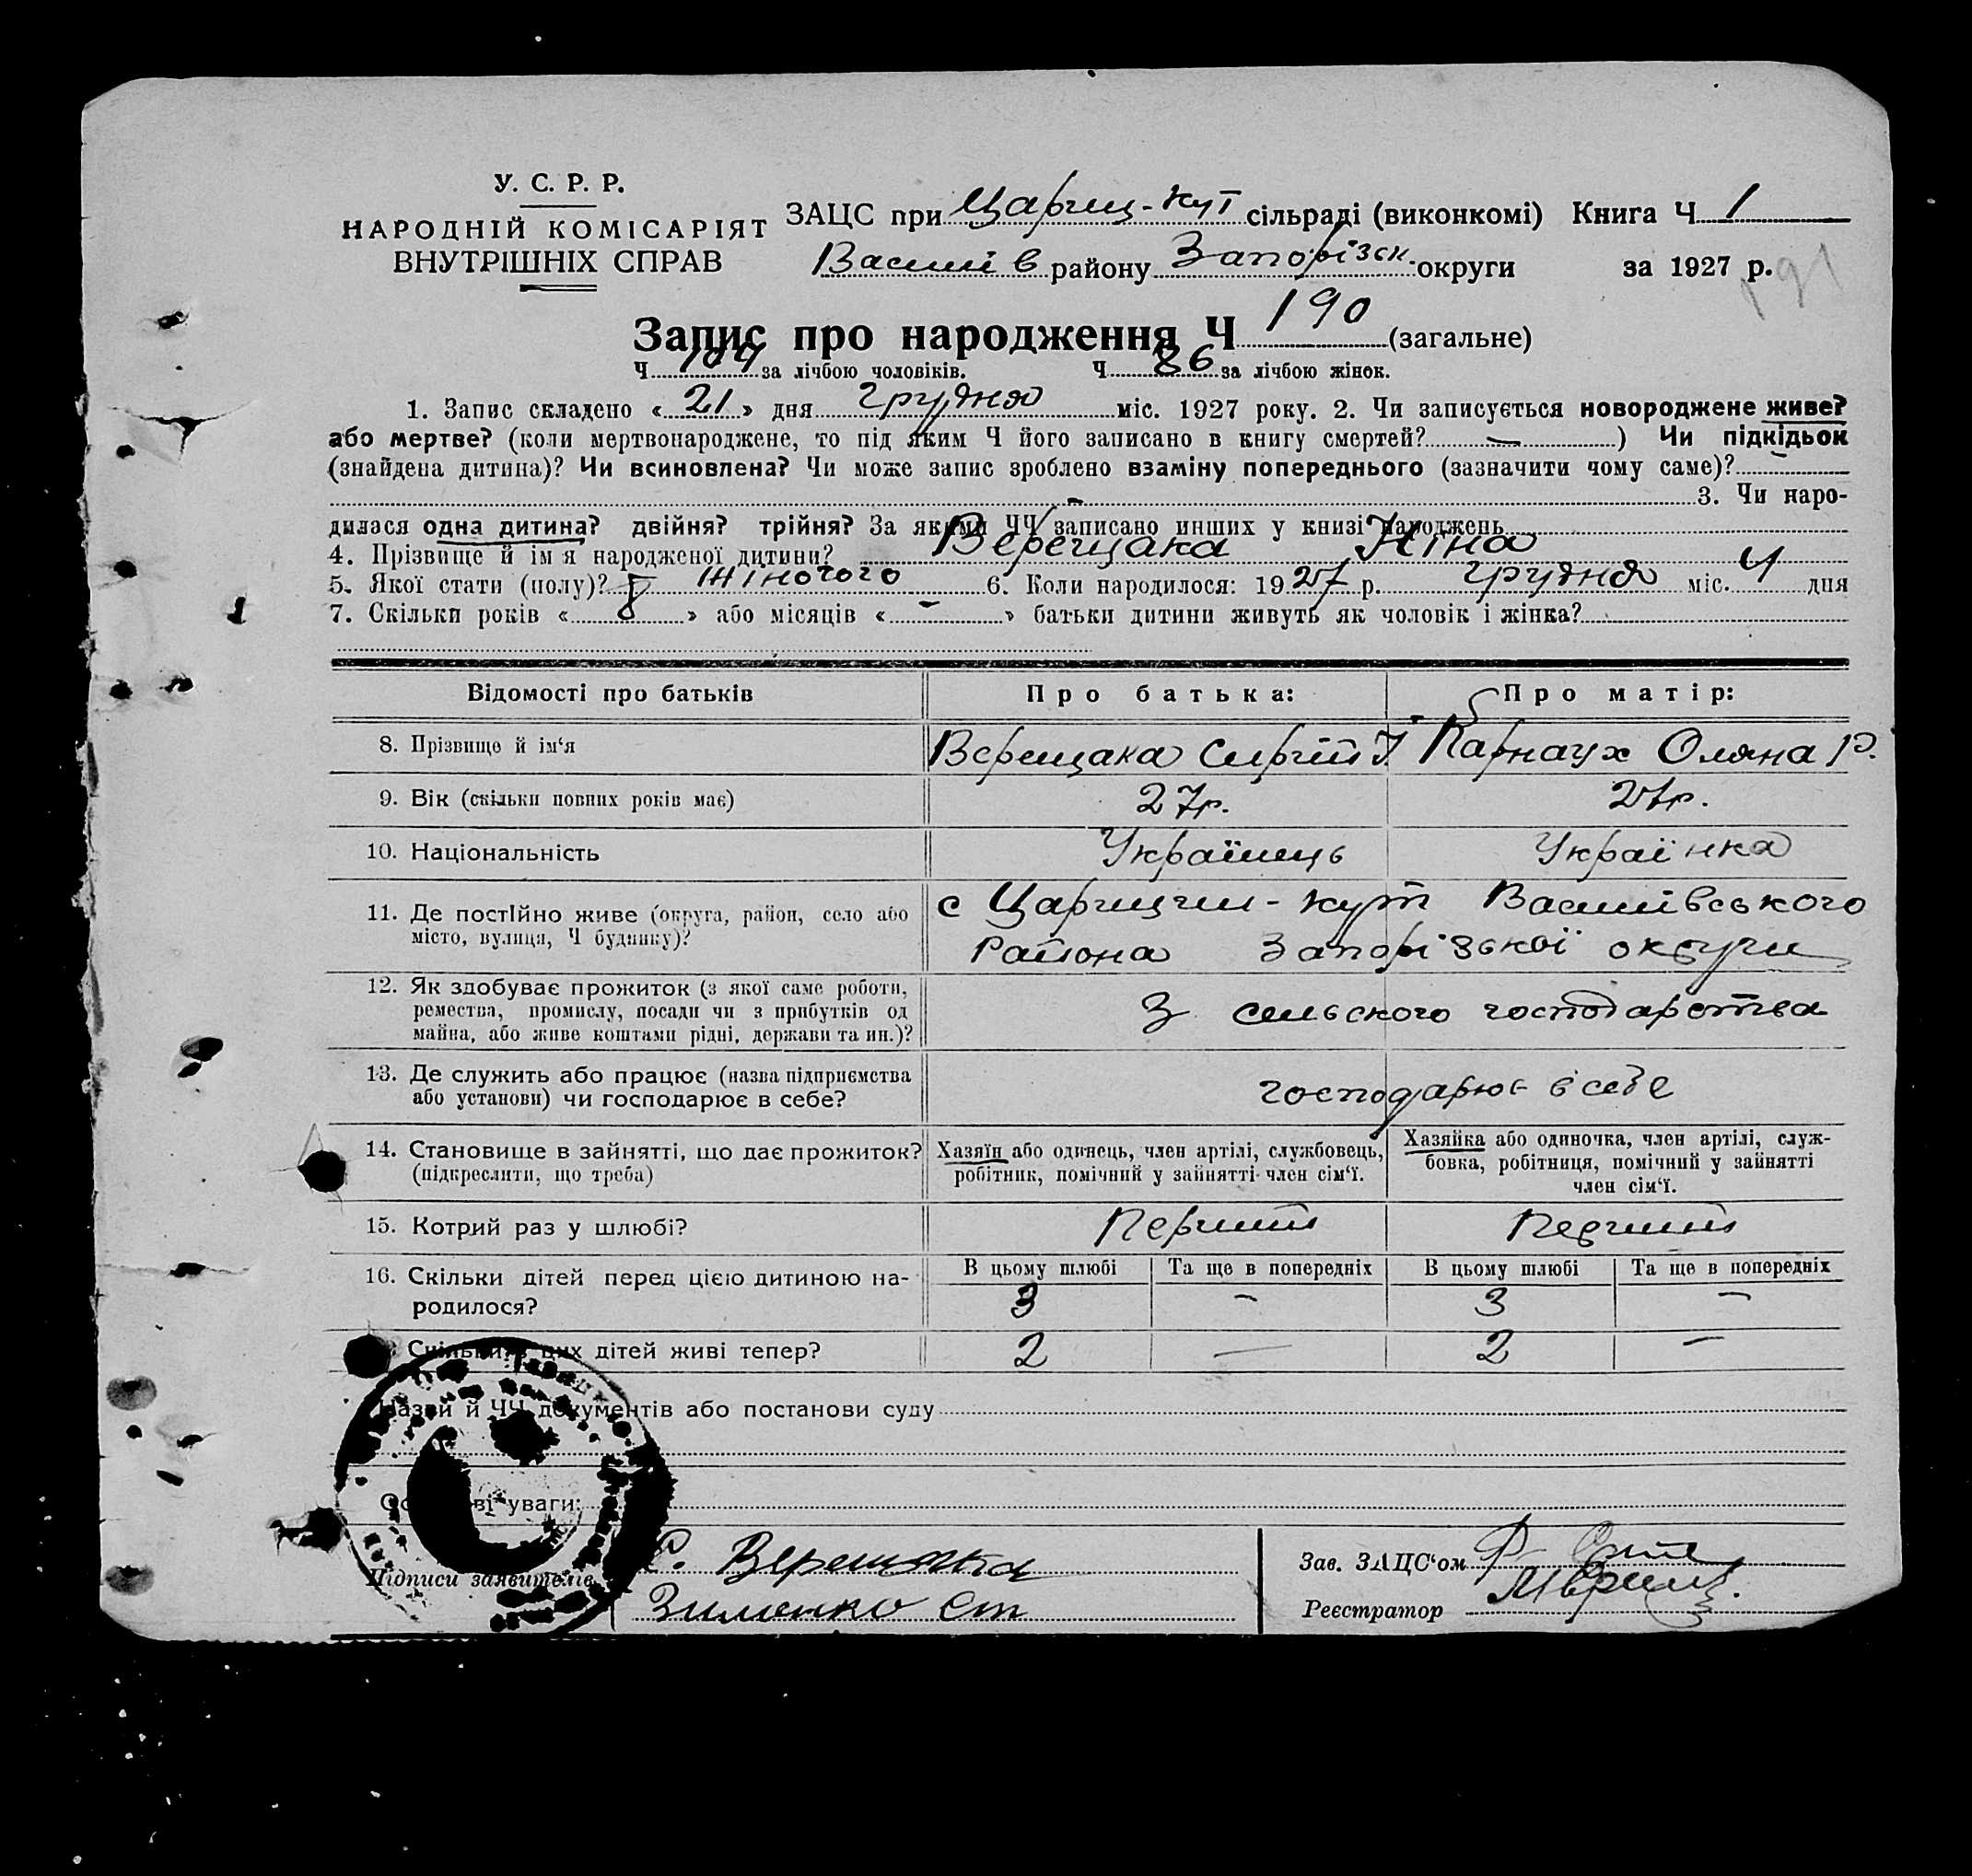 У. С. Р. Р.
НАРОДНІЙ КОМІСАРІЯТ
ВНУТРІШНІХ СПРАВ
ЗАЦС при Цариц-Кут сільраді (виконкомі) Книга Ч 1
Василів району Запорізьк. округи за 1927 р.
Запис про народження Ч 190 (загальне)
Ч 104 за лічбою чоловіків. Ч 86 за лічбою жінок.
1. Запис складено « 21 » дня грудня міс. 1927 року. 2. Чи записується новороджене живе?
або мертве? (коли мертвонароджене, то під яким Ч його записано в книгу смертей? — ) Чи підкідьок
(знайдена дитина)? Чи всиновлена? Чи може запис зроблено взаміну попереднього (зазначити чому саме)? -
- 3. Чи наро-
дилася одна дитина? двійня? трійня? За якими ЧЧ записано инших у книзі народжень
4. Прізвище й ім я народженої дитини? Верещака Ніна
5. Якої стати (полу)? жіночого 6. Коли народилося: 1927 р. грудня міс. 4 дня
7. Скільки років « 8 » або місяців « - » батьки дитини живуть як чоловік і жінка?
Відомості про батьків Про батька: Про матір:
8. Прізвище й ім‘я Верещака Сиргій І. Карнаух Оляна Р.
9. Вік (скільки повних років має) 27р. 27р.
10. Національність Українець Українка
11. Де постійно живе (округа, район, село або с Царицин-Кут Василівського
місто, вулиця, Ч будинку)? Района Запорізької округи
12. Як здобуває прожиток (з якої саме роботи,
ремества, промислу, посади чи з прибутків од З сельского господарства
майна, або живе коштами рідні, держави та ин.)?
13. Де служить або працює (назва підприємства
або установи) чи господарює в себе? господарює в себе
14. Становище в зайнятті, що дає прожиток? Хазяїн або одинець, член артілі, службовець, Хазяйка або одиночка, член артілі, служ-
(підкреслити, що треба) робітник, помічний у зайнятті член сім‘ї. бовка, робітниця, помічний у зайнятті
член сім‘ї.
15. Котрий раз у шлюбі? Перший Перший
16. Скільки дітей перед цією дитиною на- В цьому шлюбі Та ще в попередніх В цьому шлюбі Та ще в попередніх
родилося? 3 - 3 -
Скільки з цих дітей живі тепер? 2 — 2 —
Назви й ЧЧ документів або постанови суду
уваги:
Підписи заявителів С. Верещака Зав. ЗАЦС‘ом
Зименко Ст Реєстратор